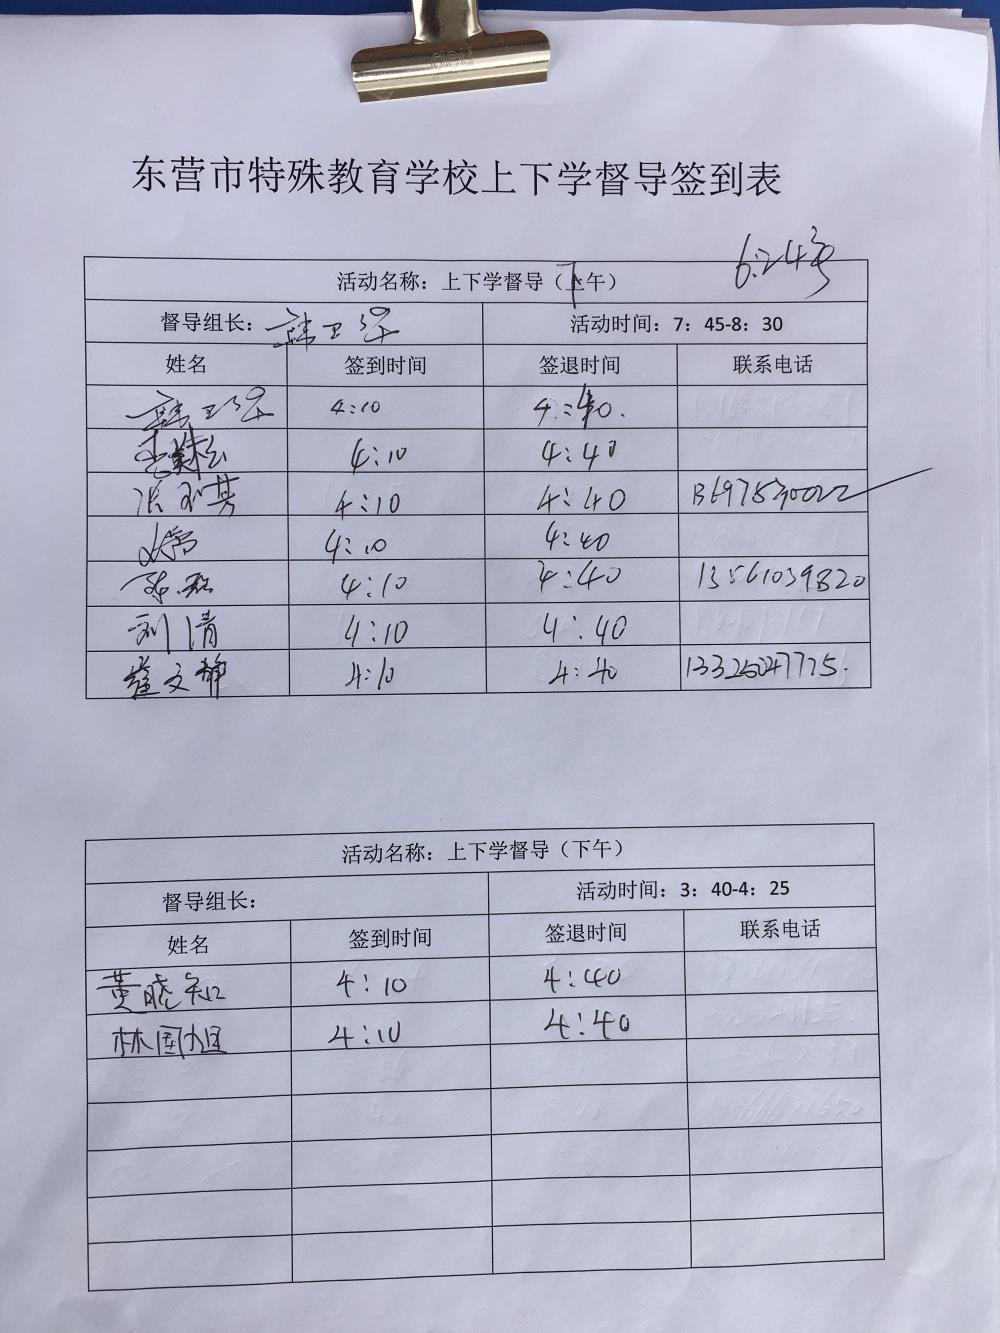 deli
东营市特殊教育学校上下学督导签到表
6.24号
活动名称：上下学督导（下午）
督导组长：韩卫华 活动时间：7：45-8：30
姓名 签到时间 签退时间 联系电话
韩卫华 4:10 4:40.
4:10 4:40
4:10 4:40
4:10 4:40
4:10 4:40 13561039820
刘清 4:10 4:40
崔文静 4:10 4:40
活动名称：上下学督导（下午）
督导组长： 活动时间：3：40-4：25
姓名 签到时间 签退时间 联系电话
黄晓知 4:10 4:40
林国旭 4:10 4:40